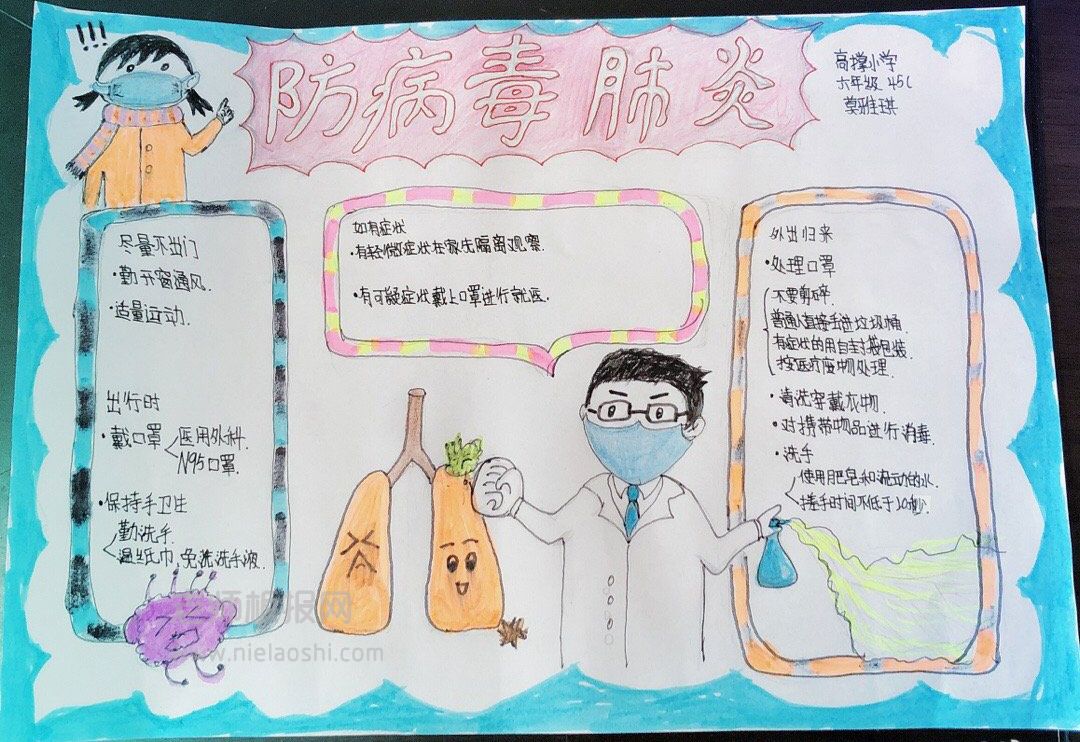 !!!
防病毒肺炎
高撑小学
六年级
尽量不出门
·勤开窗通风.
·适量运动.
出行时
·戴口罩 医用外科.
N95口罩.
·保持手卫生
勤洗手.
湿纸巾,免洗洗手液.
如有症状
·有轻微症状在家先隔离观察.
·有可疑症状戴上口罩进行就医.
外出归来
·处理口罩
不要剪碎.
普通人直接丢进垃圾桶.
有症状的用自封袋包装.
按医疗废物处理.
·清洗穿戴衣物.
·对携带物品进行消毒.
·洗手
使用肥皂和流动的水.
搓手时间不低于
www.nielaoshi.com